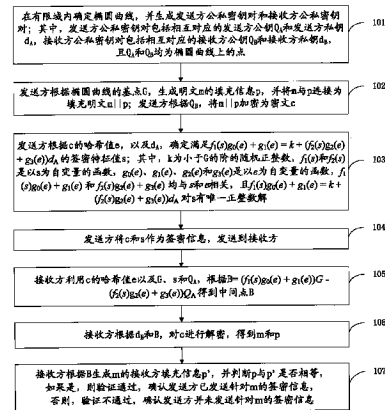 在有限域内确定椭圆曲线，并生成发送方公私密钥对和接收方公私密钥
对；其中，发送方公私密钥对包括相互对应的发送方公钥Q_A和发送方私钥
d_A，接收方公私密钥对包括相互对应的接收方公钥Q_B和接收方私钥d_B，
且Q_A和Q_B均为椭圆曲线上的点
101
发送方根据椭圆曲线的基点G，生成明文m的填充信息p，并将m与p连接为
填充明文m||p；发送方根据Q_B，将m||p加密为密文c
102
发送方根据c的哈希值e，以及d_A，确定满足f₁(s)g₀(e) + g₁(e) = k + (f₂(s)g₂(e)
+ g₃(e))d_A的签密特征值s；其中，k为小于G的阶的随机正整数，f₁(s)和f₂(s)
是以s为自变量的函数，g₀(e)、g₁(e)、g₂(e)和g₃(e)是以e为自变量的函数，
f₁(s)g₀(e) + g₁(e) 和 f₂(s)g₂(e) + g₃(e) 均与s和e相关，且f₁(s)g₀(e) + g₁(e) = k +
(f₂(s)g₂(e) + g₃(e))d_A 对s有唯一正整数解
103
发送方将c和s作为签密信息，发送到接收方
104
接收方利用c的哈希值e以及G、s和Q_A，根据B= (f₁(s)g₀(e) + g₁(e))G -
(f₂(s)g₂(e) + g₃(e))Q_A 得到中间点B
105
接收方根据d_B和B，对c进行解密，得到m和p
106
接收方根据B生成m的接收方填充信息p'，并判断p与p' 是否相等，
如果是，则验证通过，确认发送方已发送针对m的签密信息，
否则，验证不通过，确认发送方并未发送针对m的签密信息
107